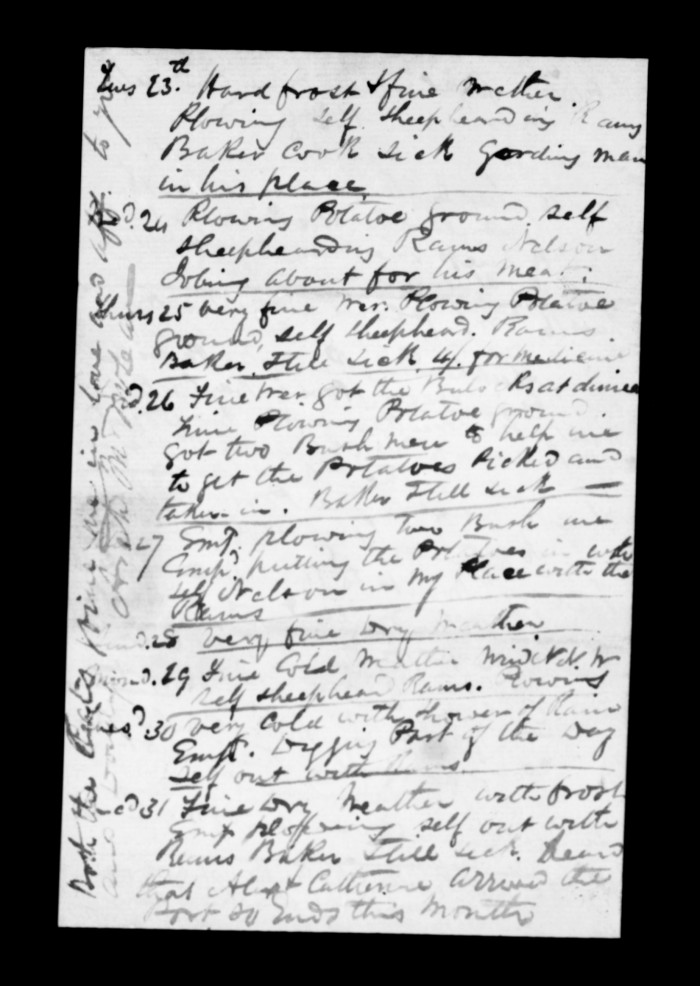 Tues 23.th Hard frost & fine Wether.
Plowing self sheephearding Rams
Baker Cook sick Gording man
in his place
24 Plowing Potatoe ground. self
sheephearding Rams Nelson
Jobing about for his meat.
Thurs 25 very fine Wer. Plowing Potatoe
ground, self sheepheard. Rams.
Baker Still sick for medicine
26 Fine Wer. got the Bulocks at dinner
time Plowing Potatoe ground.
got two Bush men to help me
to get the Potatoes Picked and
taken in. Baker Still sick
27 Emp. plowing two Bush me
Emp.d putting the Potatoes in with
self Nelson in My Place with the
Rams
28 very fine Dry Weather
29 Fine Cold Weather Wind N.W.
self sheepheard Rams. Plowing
30 very Cold with shower of Rain
Emp.d. Digging Part of the Day
self out with Rams
31 Fine Dry Weather with frost
Emp self out with
Rams Baker Still sick. Heard
that Catherine arrived the
Port So Ends this Month
Both the
in Love and